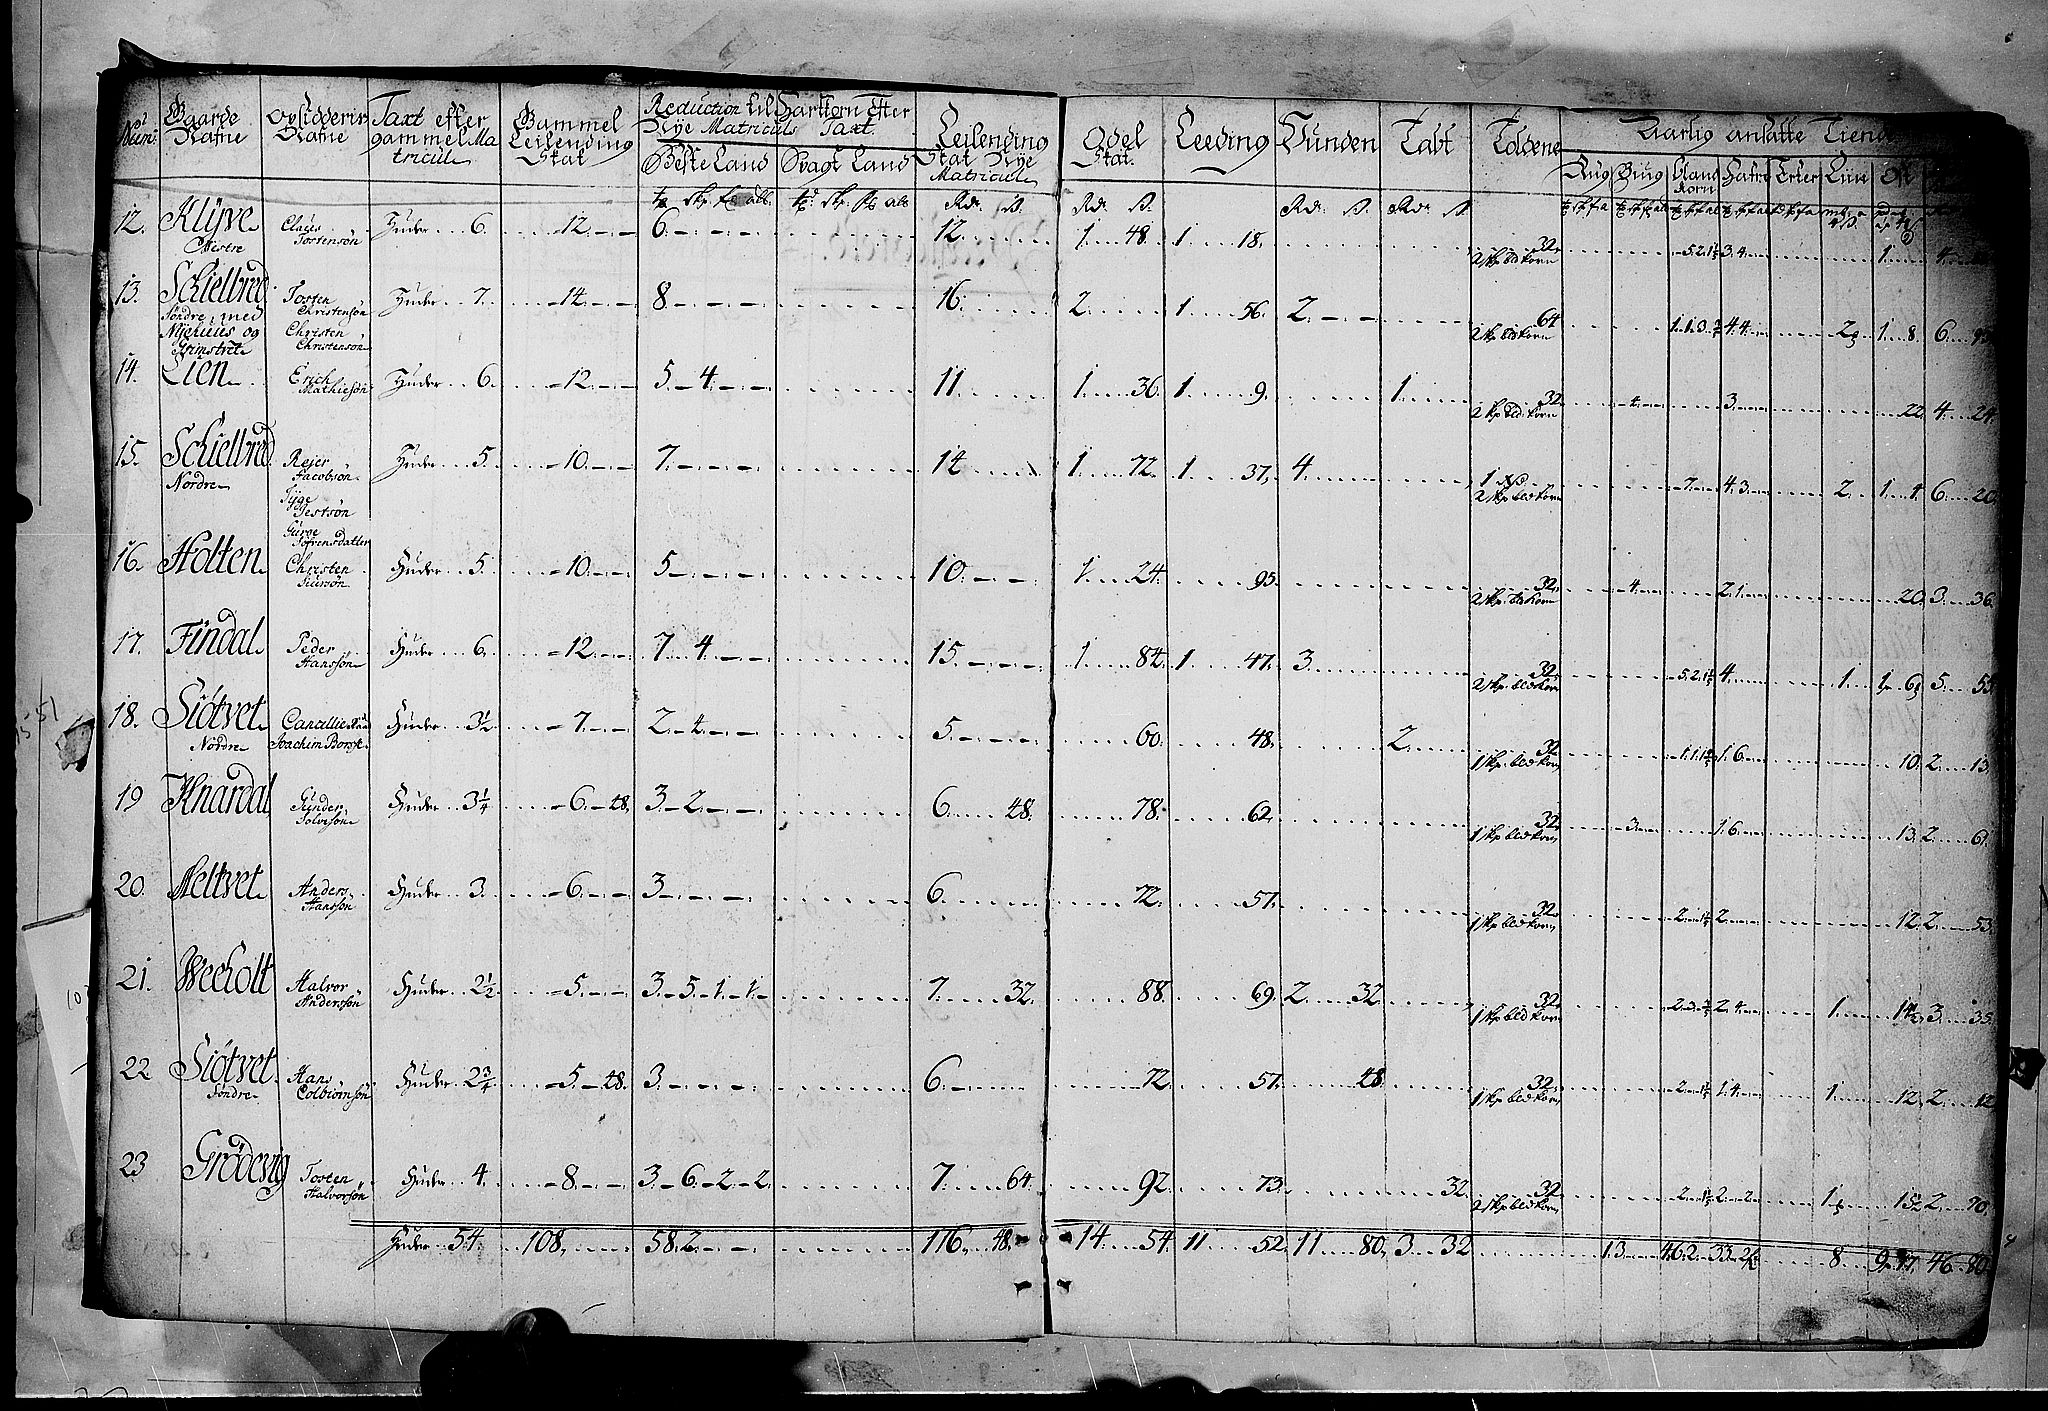 No Num: Gaarde Nafne Opsidderis Nafne Taxt efter gammel Matricul Gammel Leilending Skat Reduction til Nye Matriculs Hartkorn Efter Taxt. Leilending Skat Nye Matricul Odel Skat. Leeding Vunden Tabt Toldene Aarlig ansatte Tiende
Beste Land Svagt Land Rug Biug Bland Korn Hafre Erter Liin
Rdr. ß. Rdr. ß. Rdr. ß. Rdr. ß.
12. Klÿve Westre Claus Torstensön Huder 6. 12. 6. 12. 1. 48. 1. 18. 32. 2 skp. bl. korn 5. 2. 1½ 3. 4. 1. 4.
13. Schielbred Søndre, med Nÿehuus og Grimstvet Tosten Christensön Christen Christensön Huder 7. 14. 8. 16. 2. 1. 56. 2. 64. 2 skp. bl. korn 1. 1. 3. 4. 4. 2 1. 8. 6.
14. Lien Erich Mathiesön Huder 6. 12. 5. 4. 11. 1. 36. 1. 9. 1. 32. 2 skp. bl. korn 4. 3. 22. 4. 24.
15. Schielbred Nordre Rejer Jacobsön Tÿge Jestsön Guroe Sørensdatter Huder 5. 10. 7. 14 1. 72. 1. 37. 4. 2 skp. bl. korn 7. 4. 3. 2. 1. 4. 6. 20.
16. Holten Christen Siursön Huder 5. 10. 5. 10. 1. 24. 95. 32. 2 skp. bl. korn 4. 2. 1. 20. 3. 36.
17. Findal Peder Hanssön Huder 6. 12. 7. 4. 15. 1. 84. 1. 47. 3. 32. 2 skp. bl. korn 5. 2. 1½ 4. 1. 1. 6 5. 55.
18. Siøtvet Nordre Cancellie Raad Joachim Borse Huder 3½ 7. 2. 4. 5. 60. 48. 2. 32. 1 skp. bl. korn 1. 1. 1½ 1. 6. 10. 2. 13.
19 Knardal Gunder Solvesön Huder 3¼ 6. 48. 3. 2. 6. 48. 78. 62. 32. 1 skp. bl. korn 3. 1. 6. 13. 2. 61.
20. Meltvet Anders Hanssön Huder 3. 6. 3. 6. 72. 57. 32. 1 skp. bl. korn 2. 1½ 2. 12. 2. 53.
21. Weeholt Halvor Anderssön Huder 2½ 5. 3. 5. 1. 1. 7. 32. 88. 69. 2. 32. 32. 1 skp. bl. korn 2. 3. 2. 4. 1. 14½ 3. 35.
22 Siøtvet Søndre Hans Colbiörnsön Huder 2¾ 5. 48. 3. 6. 72. 57. 48. 32. 1 skp. bl. korn 2. 1½ 1. 4. 1. 12. 2. 12
23 Grödevig Tosten Halvorsön Huder 4. 8. 3. 6. 2. 2. 7. 64. 92. 73. 32. 32. 2 skp. bl. korn 2. 1½ 2. 2. 1½ 15½ 2. 70.
Huder 54. 108. 58. 2. 116. 48. 14. 54. 11. 52. 11. 80. 3. 32 13. 46. 2. 33. 8. 9. 17. 46. 80.